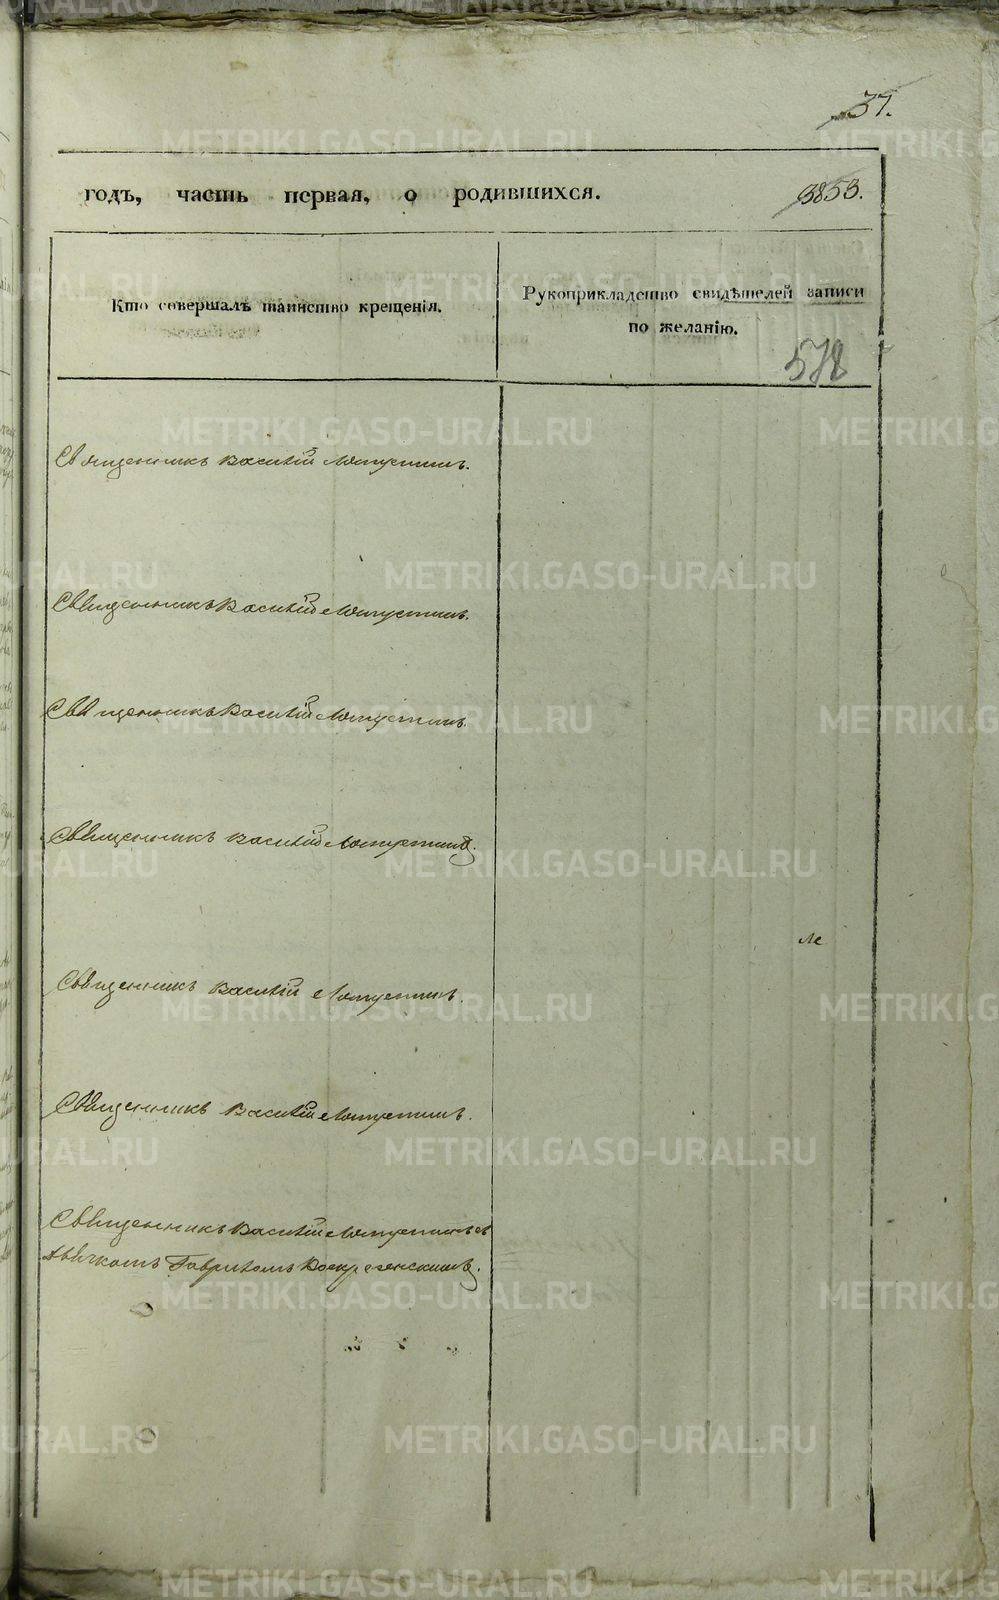 37.
годъ, часть первая, о родившихся. 3853.
Кто совершалъ таинство крещенія.
Рукоприкладство свидѣтелей записи
по желанію.
578
Священникъ Василій Лопустинъ.
Священникъ Василій Лопустинъ.
Священникъ Василій Лопустинъ
Священникъ Василій Лопустинъ.
Священникъ Василій Лопустинъ.
Священникъ Василій Лопустинъ.
Священникъ Василій Лопустинъ съ
дьячкомъ Гавриломъ Воскресенскимъ.
METRIKI.GASO-URAL.RU